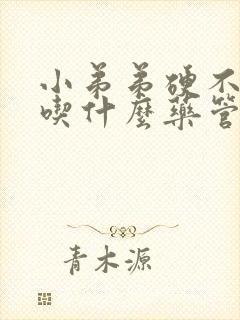 小弟弟硬不
喫什麼藥管
青木源